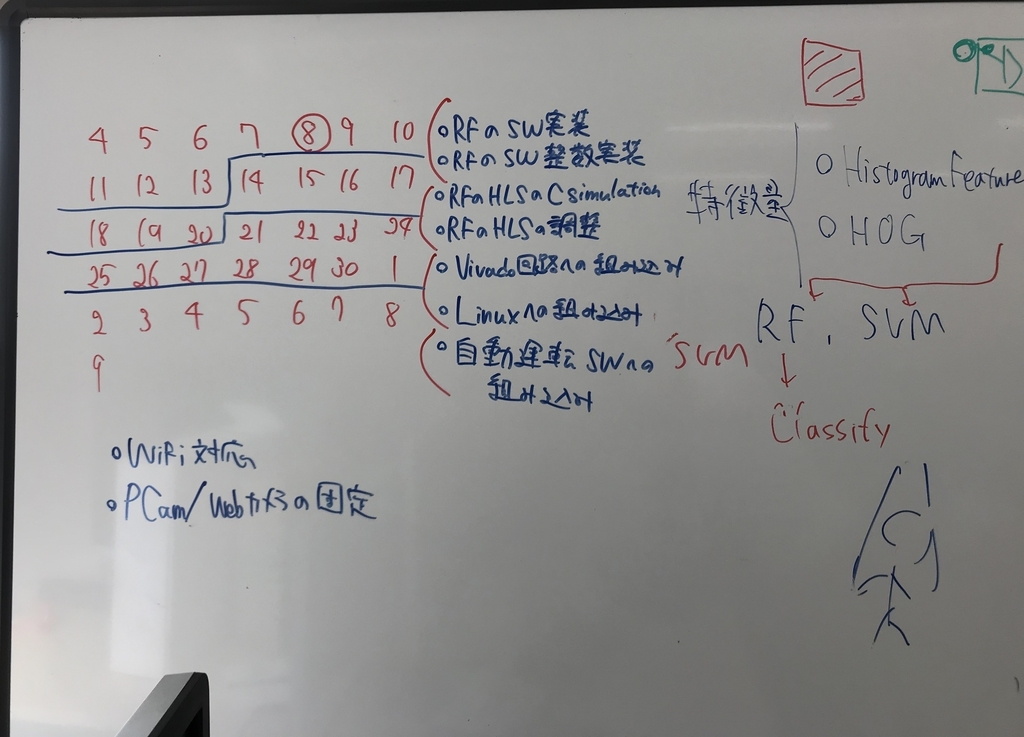 4 5 6 7 8 9 10
11 12 13 14 15 16 17
18 19 20 21 22 23 24
25 26 27 28 29 30 1
2 3 4 5 6 7 8
9
○RFのSW実装
○RFのSW整数実装
○RFのHLSのCsimulation
○RFのHLSの調整
○Vivado回路への組み込み
○Linuxへの組み込み
○自動運転SWへの
組み込み
SVM
○WiFi対応
○PCam/Webカメラの固定
特徴量
○Histogram Feature
○HOG
RF, SVM
Classify